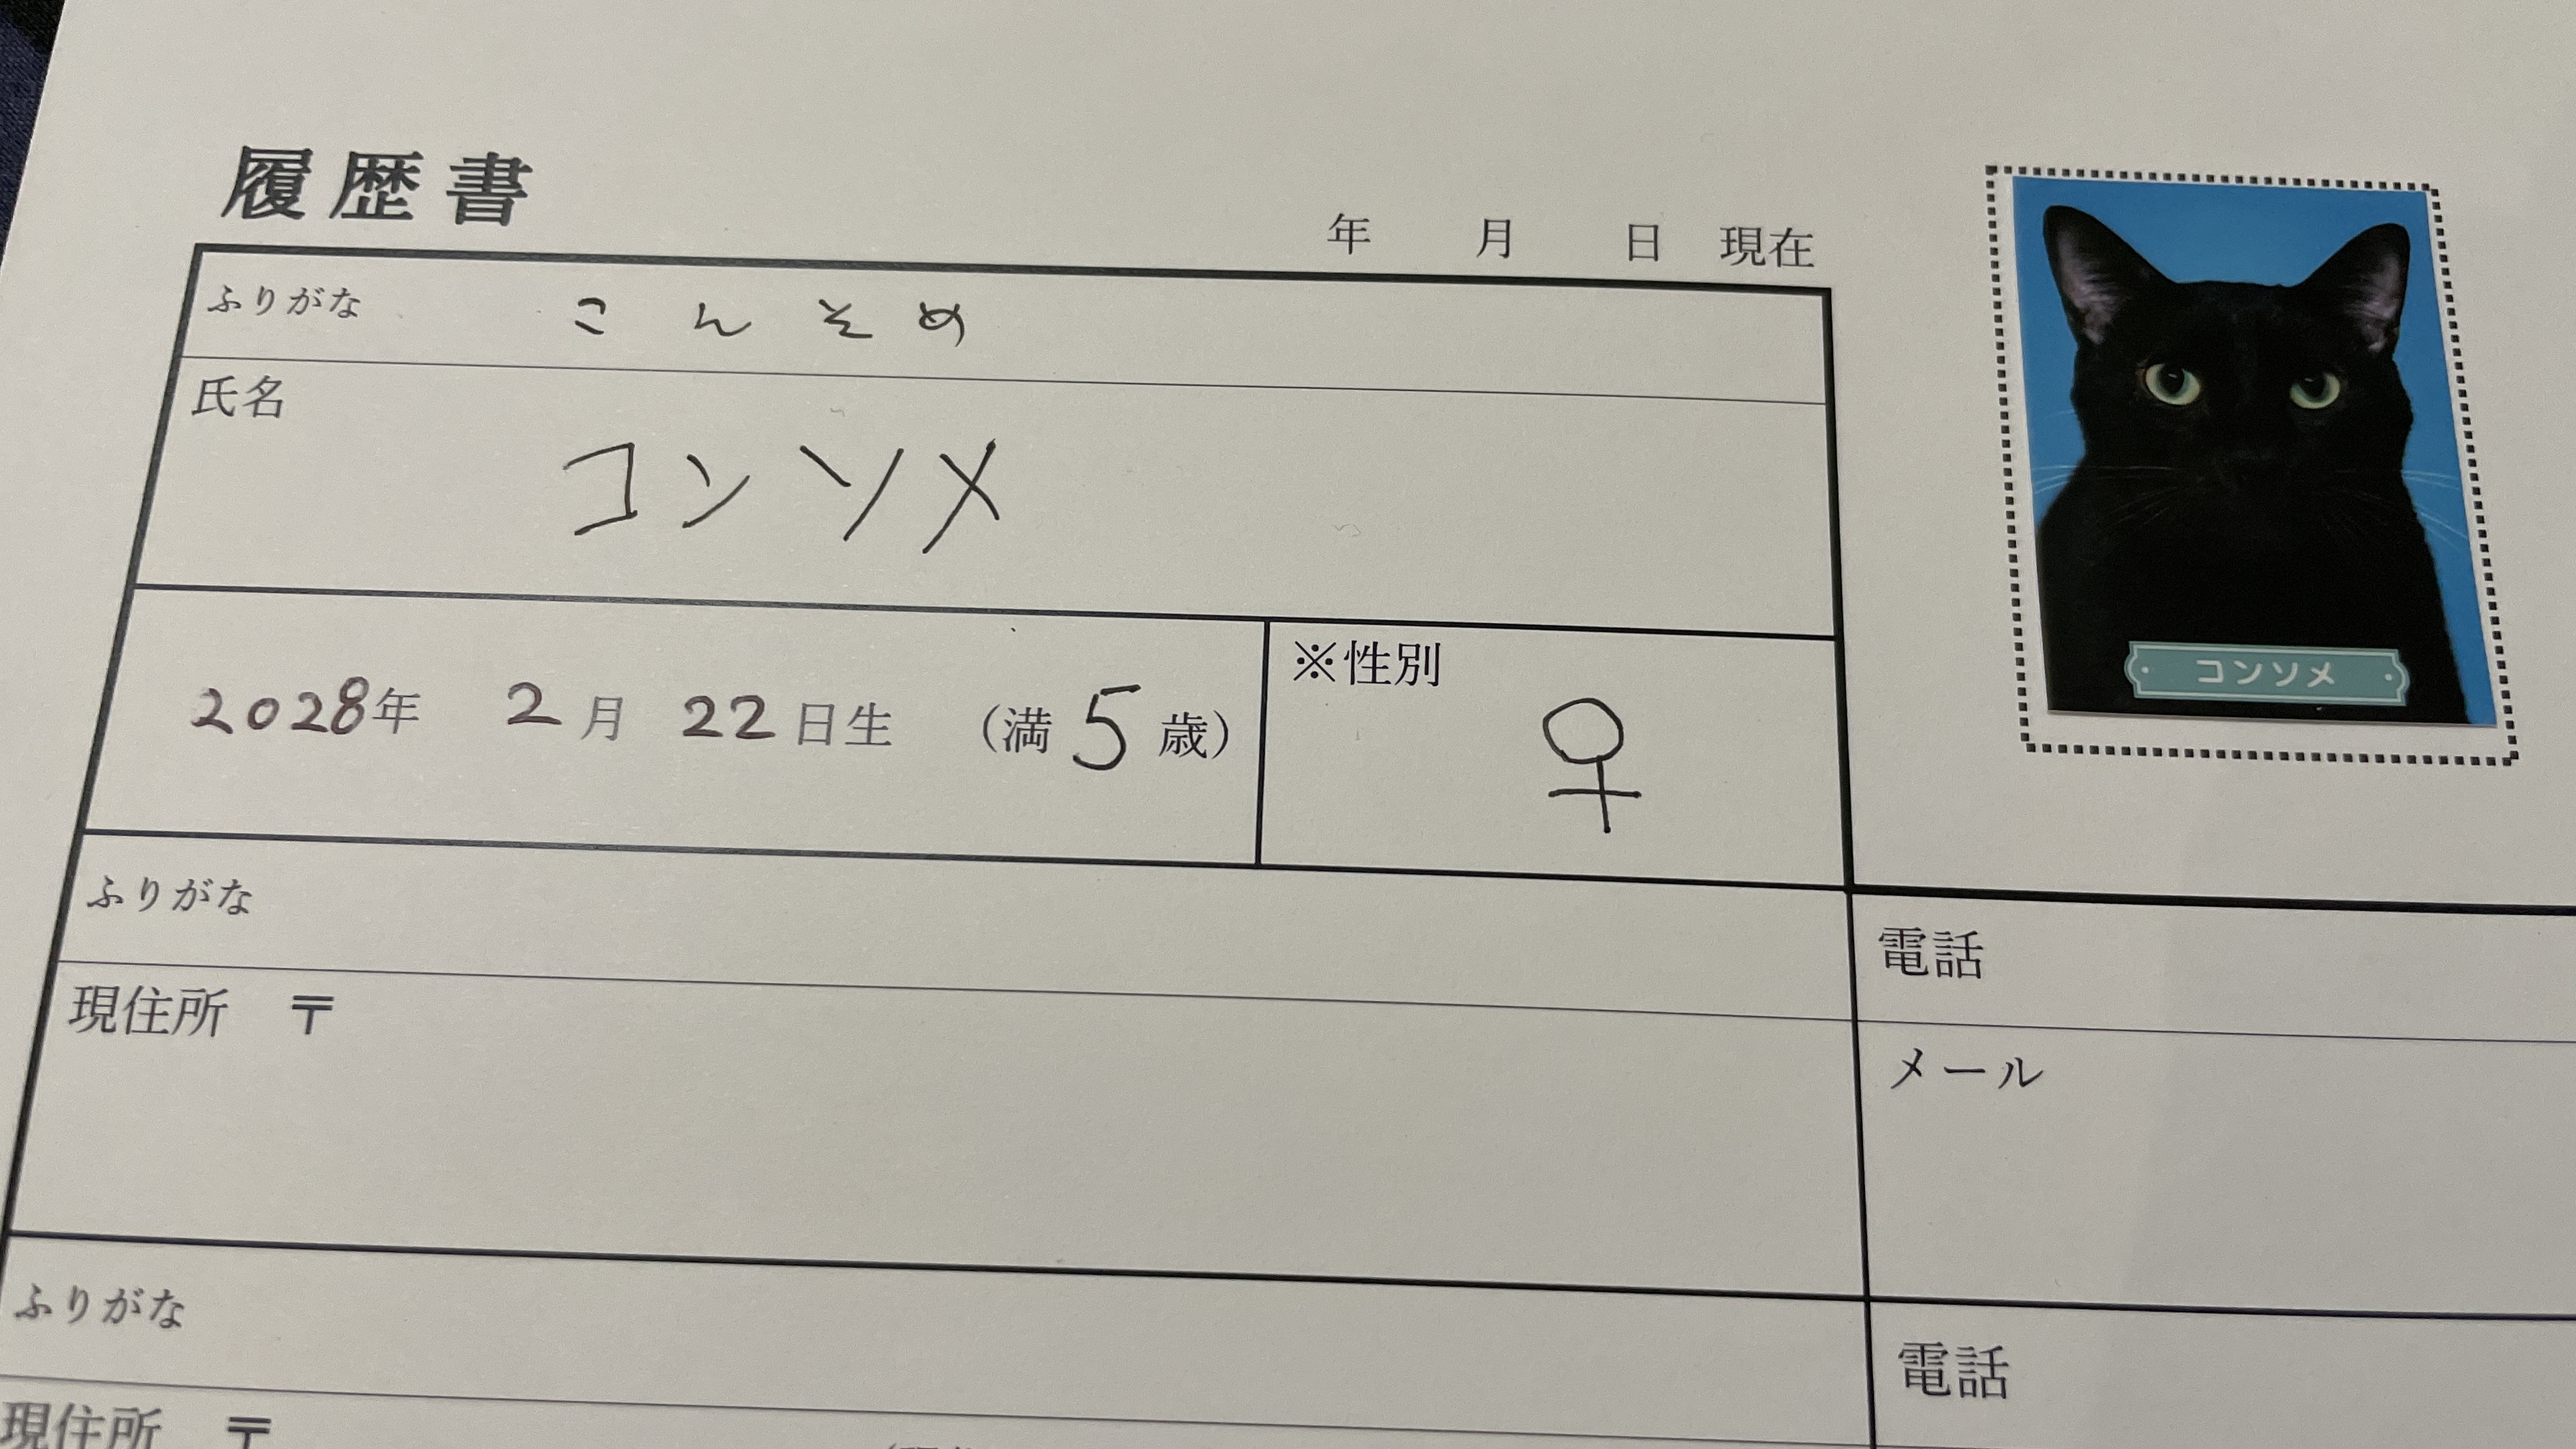 履歴書
年 月 日 現在
ふりがな こんそめ
氏名
コンソメ
コンソメ
2028年 2月 22日生 (満 5 歳)
※性別
♀
ふりがな
電話
現住所 〒
メール
ふりがな
電話
現住所 〒